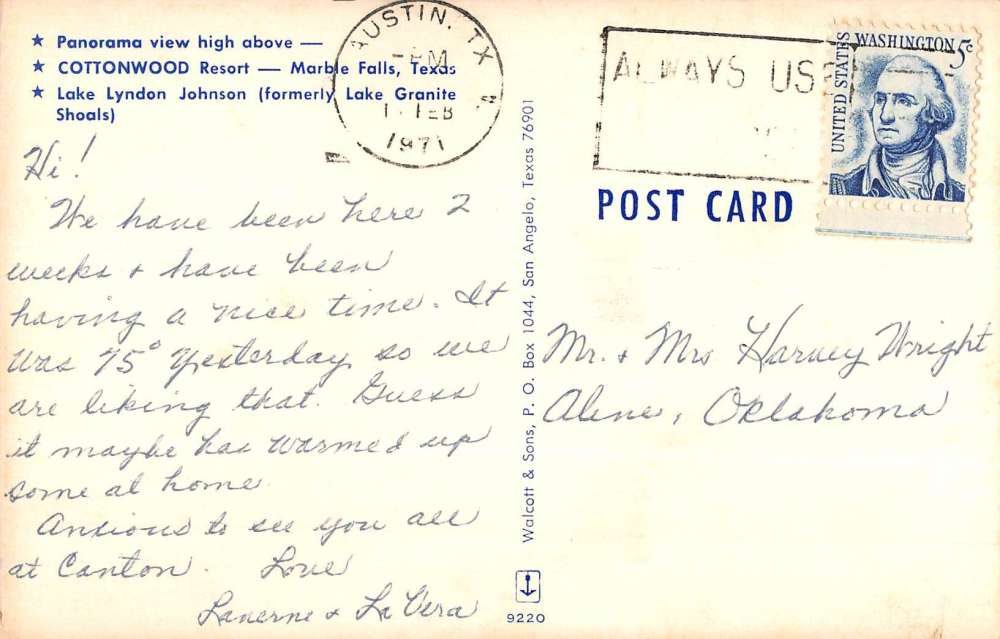 ★ Panorama view high above —
★ COTTONWOOD Resort — Marble Falls, Texas
★ Lake Lyndon Johnson (formerly Lake Granite
Shoals)
AUSTIN, TX
PM
FEB
1971
ALWAYS USE
UNITED STATES
WASHINGTON 5c
POST CARD
Hi!
We have been here 2
weeks + have been
having a nice time. It
was 75° yesterday so we
are liking that. Guess
it maybe has warmed up
some at home.
Anxious to see you all
at Canton. Love
Laverne + La Vera
Walcott & Sons, P. O. Box 1044, San Angelo, Texas 76901
9220
Mr. + Mrs Harvey Wright
Aline, Oklahoma